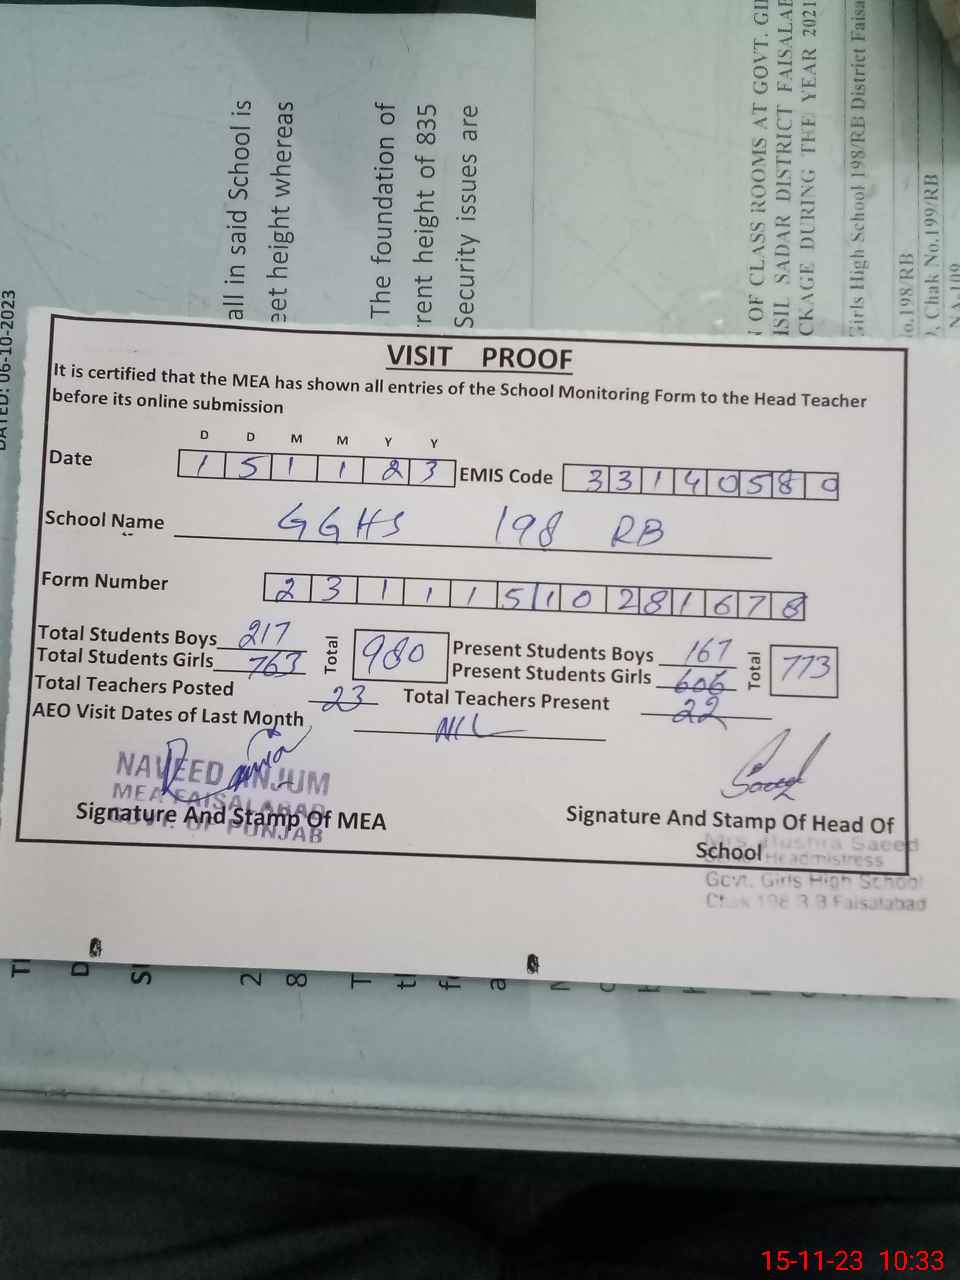 all in said School is
eet height whereas
The foundation of
rent height of 835
Security issues are
OF CLASS ROOMS AT GOVT. GI
SIL SADAR DISTRICT FAISALAB
CKAGE DURING THE YEAR 2021
Girls High School 198/RB District Faisa
o.198/RB
, Chak No.199/RB
NA-109
DATED: 06-10-2023
VISIT PROOF
It is certified that the MEA has shown all entries of the School Monitoring Form to the Head Teacher
before its online submission
D D M M Y Y
Date 1 5 1 1 2 3 EMIS Code 3 3 1 4 0 5 8 0
School Name GGHS 198 RB
Form Number 2 3 1 1 1 5 1 0 2 8 1 6 7 8
Total Students Boys 217 Total 980 Present Students Boys 167 Total 773
Total Students Girls 763 Present Students Girls 606
Total Teachers Posted 23 Total Teachers Present 22
AEO Visit Dates of Last Month NIL
NAVEED ANJUM
MEA FAISALABAD
GOVT. OF PUNJAB
Signature And Stamp Of MEA
Saeed
Signature And Stamp Of Head Of
School
Mrs. Bushra Saeed
Headmistress
Govt. Girls High School
Chak 198 R.B Faisalabad
15-11-23 10:33